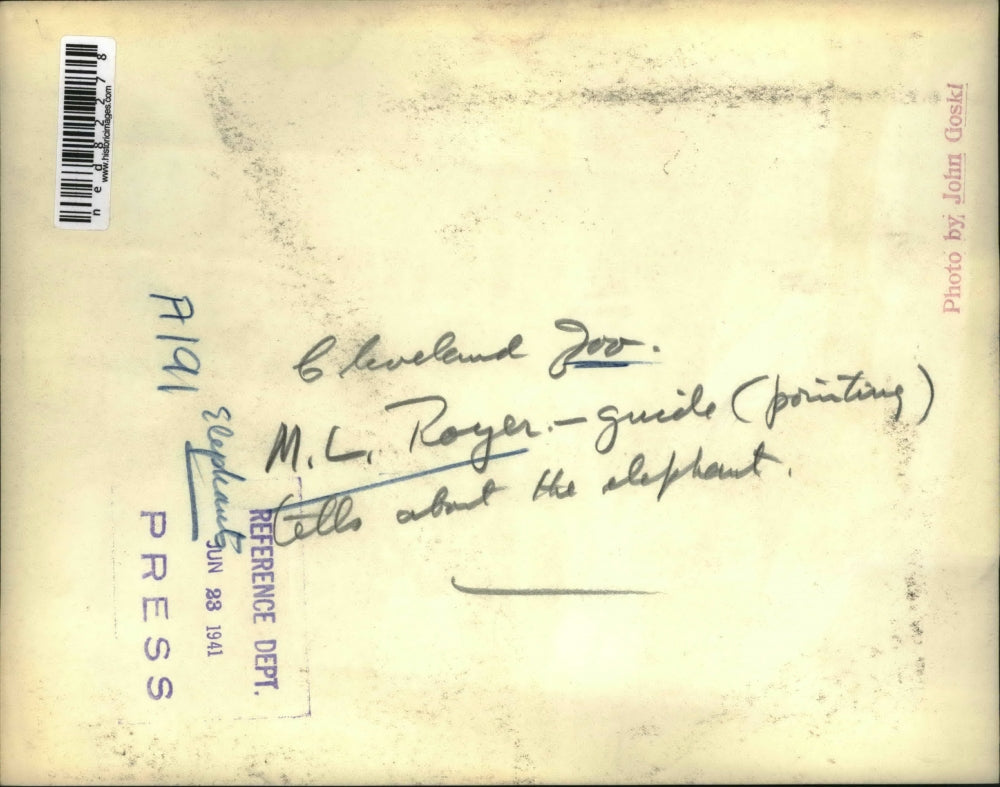 ned82278
www.historicimages.com
Photo by John Goski
Cleveland Zoo.
M. L. Royer. – guide (pointing)
tells about the elephant.
A191
Elephants
REFERENCE DEPT.
JUN 28 1941
PRESS